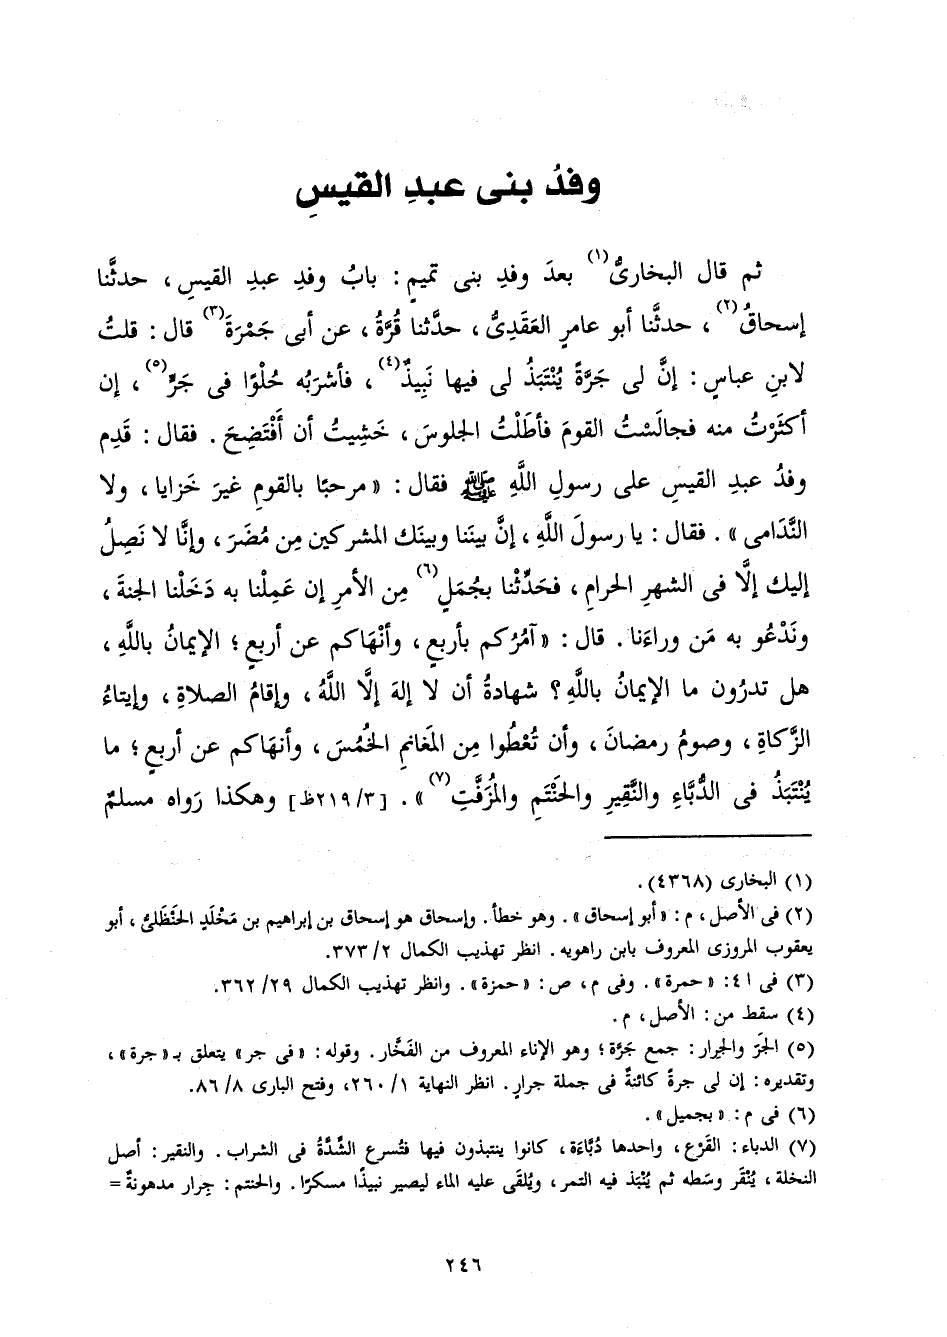 وفدُ بنى عبدِ القيسِ
ثم قال البخارىُّ(١) بعدَ وفدِ بنى تميمٍ : بابُ وفدِ عبدِ القيسِ ، حدثَّنا
إسحاقُ(٢) ، حدثَّنا أبو عامرٍ العَقَدِىُّ ، حدَّثنا قُرَّةُ ، عن أبى جَمْرَةَ(٣) قال : قلتُ
لابنِ عباسٍ : إنَّ لى جَرَّةً يُنْتَبَذُ لى فيها نَبِيذٌ(٤) ، فأشرَبُه حُلْوًا فى جَرٍّ(٥) ، إن
أكثَرْتُ منه فجالَسْتُ القومَ فأطَلْتُ الجلوسَ ، خَشِيتُ أن أَفْتَضِحَ . فقال : قَدِم
وفدُ عبدِ القيسِ على رسولِ اللَّهِ ﷺ فقال : « مرحبًا بالقومِ غيرَ خَزايا ، ولا
النَّدامى » . فقال : يا رسولَ اللَّهِ ، إنَّ بينَنا وبينَك المشركين مِن مُضَرَ ، وإنَّا لا نَصِلُ
إليك إلَّا فى الشهرِ الحرامِ ، فحَدِّثْنا بجُمَلٍ(٦) مِن الأمرِ إن عَمِلْنا به دَخَلْنا الجنةَ ،
ونَدْعُو به مَن وراءَنا . قال : « آمُرُكم بأربعٍ ، وأنْهَاكم عن أربعٍ ؛ الإيمانُ باللَّهِ ،
هل تدرُون ما الإيمانُ باللَّهِ ؟ شهادةُ أن لا إلهَ إلَّا اللَّهُ ، وإقامُ الصلاةِ ، وإيتاءُ
الزَّكاةِ ، وصومُ رمضانَ ، وأن تُعْطُوا مِن المَغانمِ الخُمُسَ ، وأنهَاكم عن أربعٍ ؛ ما
يُنْتَبَذُ فى الدُّبَّاءِ والنَّقِيرِ والحَنْتَمِ والمُزَفَّتِ(٧) » . [٣/ ٢١٩ظ] وهكذا رَواه مسلمٌ
(١) البخارى (٤٣٦٨) .
(٢) فى الأصل ، م : «أبو إسحاق» . وهو خطأ. وإسحاق هو إسحاق بن إبراهيم بن مَخْلَد الحَنْظَلىُّ ، أبو
يعقوب المروزى المعروف بابن راهويه. انظر تهذيب الكمال ٢/ ٣٧٣.
(٣) فى ٤١: « حمرة» . وفى م ، ص : «حمزة» . وانظر تهذيب الكمال ٢٩/ ٣٦٢.
(٤) سقط من : الأصل ، م.
(٥) الجَرّ والجِرار : جمع جَرَّة ؛ وهو الإناء المعروف من الفَخَّار . وقوله : «فى جر» يتعلق بـ«جرة» ،
وتقديره : إن لى جرةً كائنةً فى جملة جرارٍ . انظر النهاية ١/ ٢٦٠، وفتح البارى ٨/ ٨٦.
(٦) فى م : «بجميل» .
(٧) الدباء : القَرْع ، واحدها دُبَّاءَة ، كانوا ينتبذون فيها فتُسرع الشِّدَّةُ فى الشراب . والنقير : أصل
النخلة ، يُنْقَر وسَطه ثم يُنْبَذ فيه التمر ، ويُلقَى عليه الماء ليصير نبيذًا مسكرًا . والحنتم : جِرار مدهونةٌ =
٢٤٦